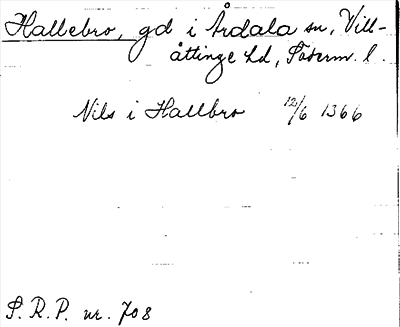 Hallebro, gd i Årdala sn, Vill-
åttinge hd, Söderm. l.
Nils i Hallbro 12/6 1366
S. R. P. nr. 708